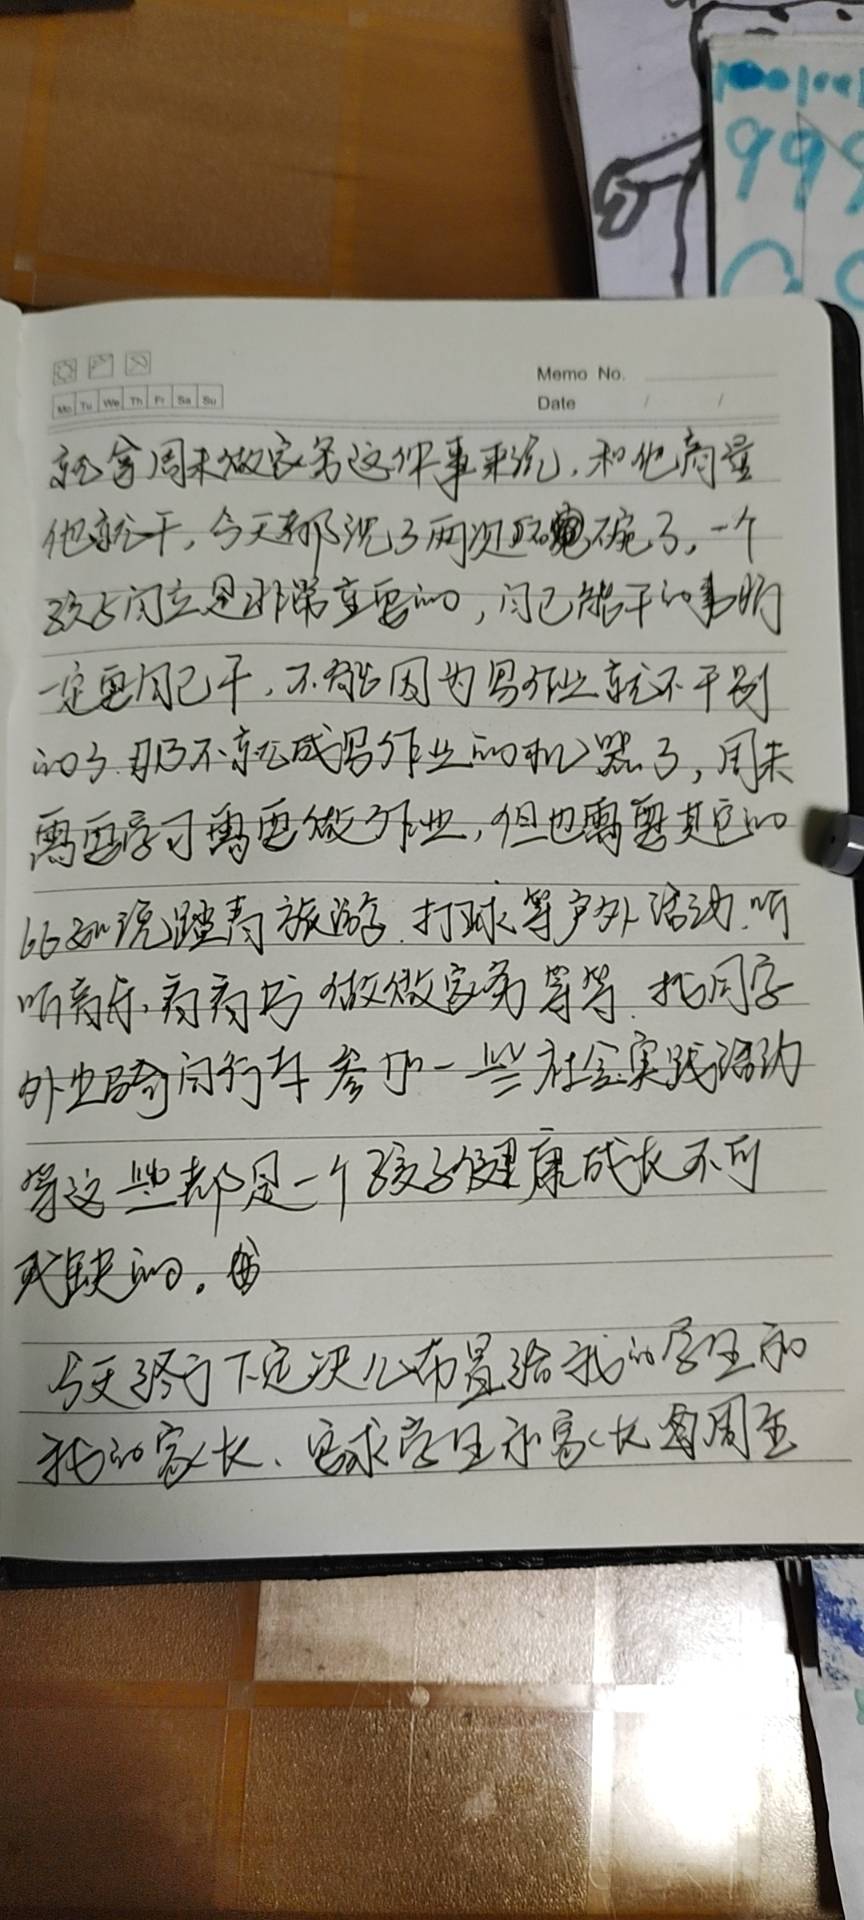 998
Memo No.
Mo Tu We Th Fr Sa Su
Date / /
就拿周末做家务这件事来说，和他商量
他就干，今天都洗了两次碗了，一个
孩子自立是非常重要的，自己能干的事情
一定要自己干，不能因为写作业就不干别
的了.那不就成写作业的机器了，周末
需要学习需要做作业，但也需要其它的
比如说踏青旅游.打球等户外活动.听
听音乐，看看书 做做家务等等.找同学
外出骑自行车 参加一些社会实践活动
等这些都是一个孩子健康成长不可
或缺的。
今天终于下定决心布置给我的学生和
我的家长、要求学生和家长每周至